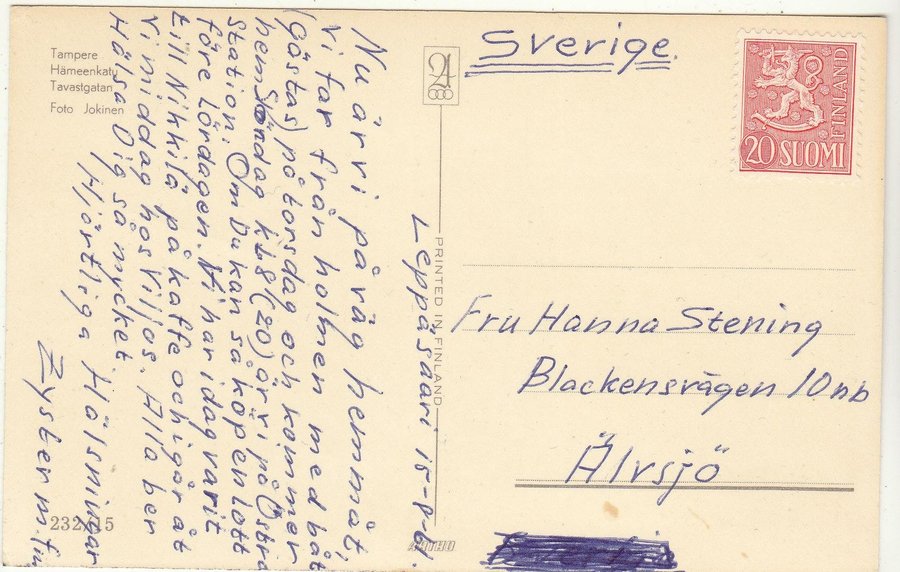 Tampere
Hämeenkatu
Tavastgatan
Foto Jokinen
Leppäsaari 15-8-61.
Nu är vi på väg hemmåt,
Vi far från holmen med båt
(Göstas) på torsdag och kommer
hem Söndag kl 8 (20) är vi på Östra
Station. Om Du kan så köp en lott
före Lördagen. Vi har idag varit
till Nikkilä på kaffe och igår åt
Vi middag hos Viljos. Alla ber
Hälsa Dig så mycket.
Hjärtliga Hälsningar
Zyster m.
232/15
PRINTED IN FINLAND
Sverige.
20 SUOMI
FINLAND
Fru Hanna Stening
Blackensvägen 10 nb
Älvsjö